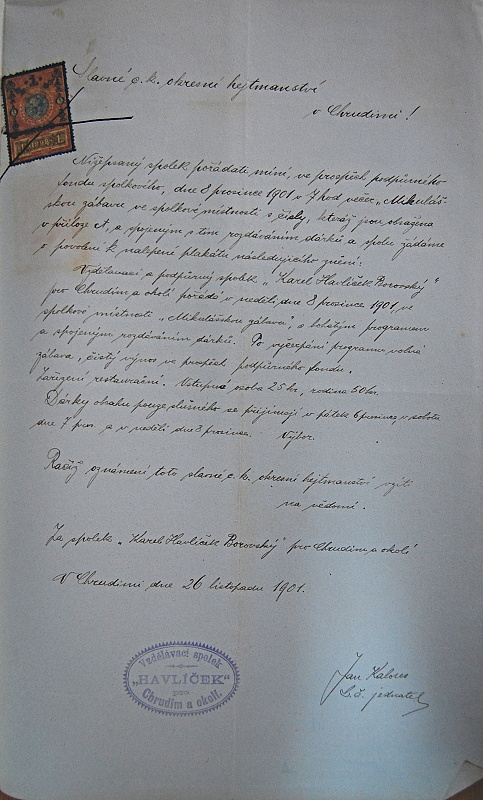 Slavné c. k. okresní hejtmanství
v Chrudimi!
1
1898
Nížepsaný spolek pořádati míní, ve prospěch podpůrného
fondu spolkového, dne 8 prosince 1901 v 7 hod večer „Mikuláš
skou zábavu ve spolkové místnosti s čísly, kteráž jsou obsažena
v příloze A, a spojeným s tím rozdáváním dárků a spolu žádáme
o povolení k nalepení plakátů následujícího znění:
Vzdělávací a podpůrný spolek „Karel Havlíček Borovský“
pro Chrudim a okolí pořádá v neděli, dne 8 prosince 1901, ve
spolkové místnosti „Mikulášskou zábavu“, s bohatým programem
a spojeným rozdáváním dárků. Po vyčerpání programu volná
zábava, čistý výnos ve prospěch podpůrného fondu.
Zařízení restaurační. Vstupné osoba 25 hr, rodina 50 hr.
Dárky obsahu pouze slušného se přijímají v pátek 6 prosince, v sobotu
dne 7 pros. a v neděli dne 8 prosince. Výbor.
Račiž oznámení toto slavné c. k. okresní hejtmanství vzíti
na vědomí.
Za spolek „Karel Havlíček Borovský“ pro Chrudim a okolí
V Chrudimi dne 26 listopadu 1901.
Vzdělávací spolek
„HAVLÍČEK“
pro
Chrudim a okolí.
Jan
t. č. jednatel